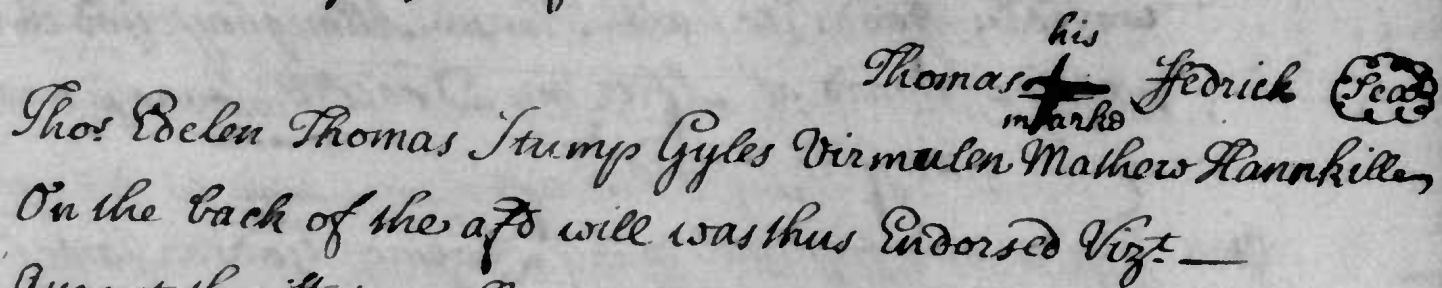 his
Thomas + ffedrick Seal
marke
Thos. Edelen Thomas Stump Gyles Virmulen Mathew Hannkillen
On the back of the afd will was thus Endorsed Vizt. —
August the